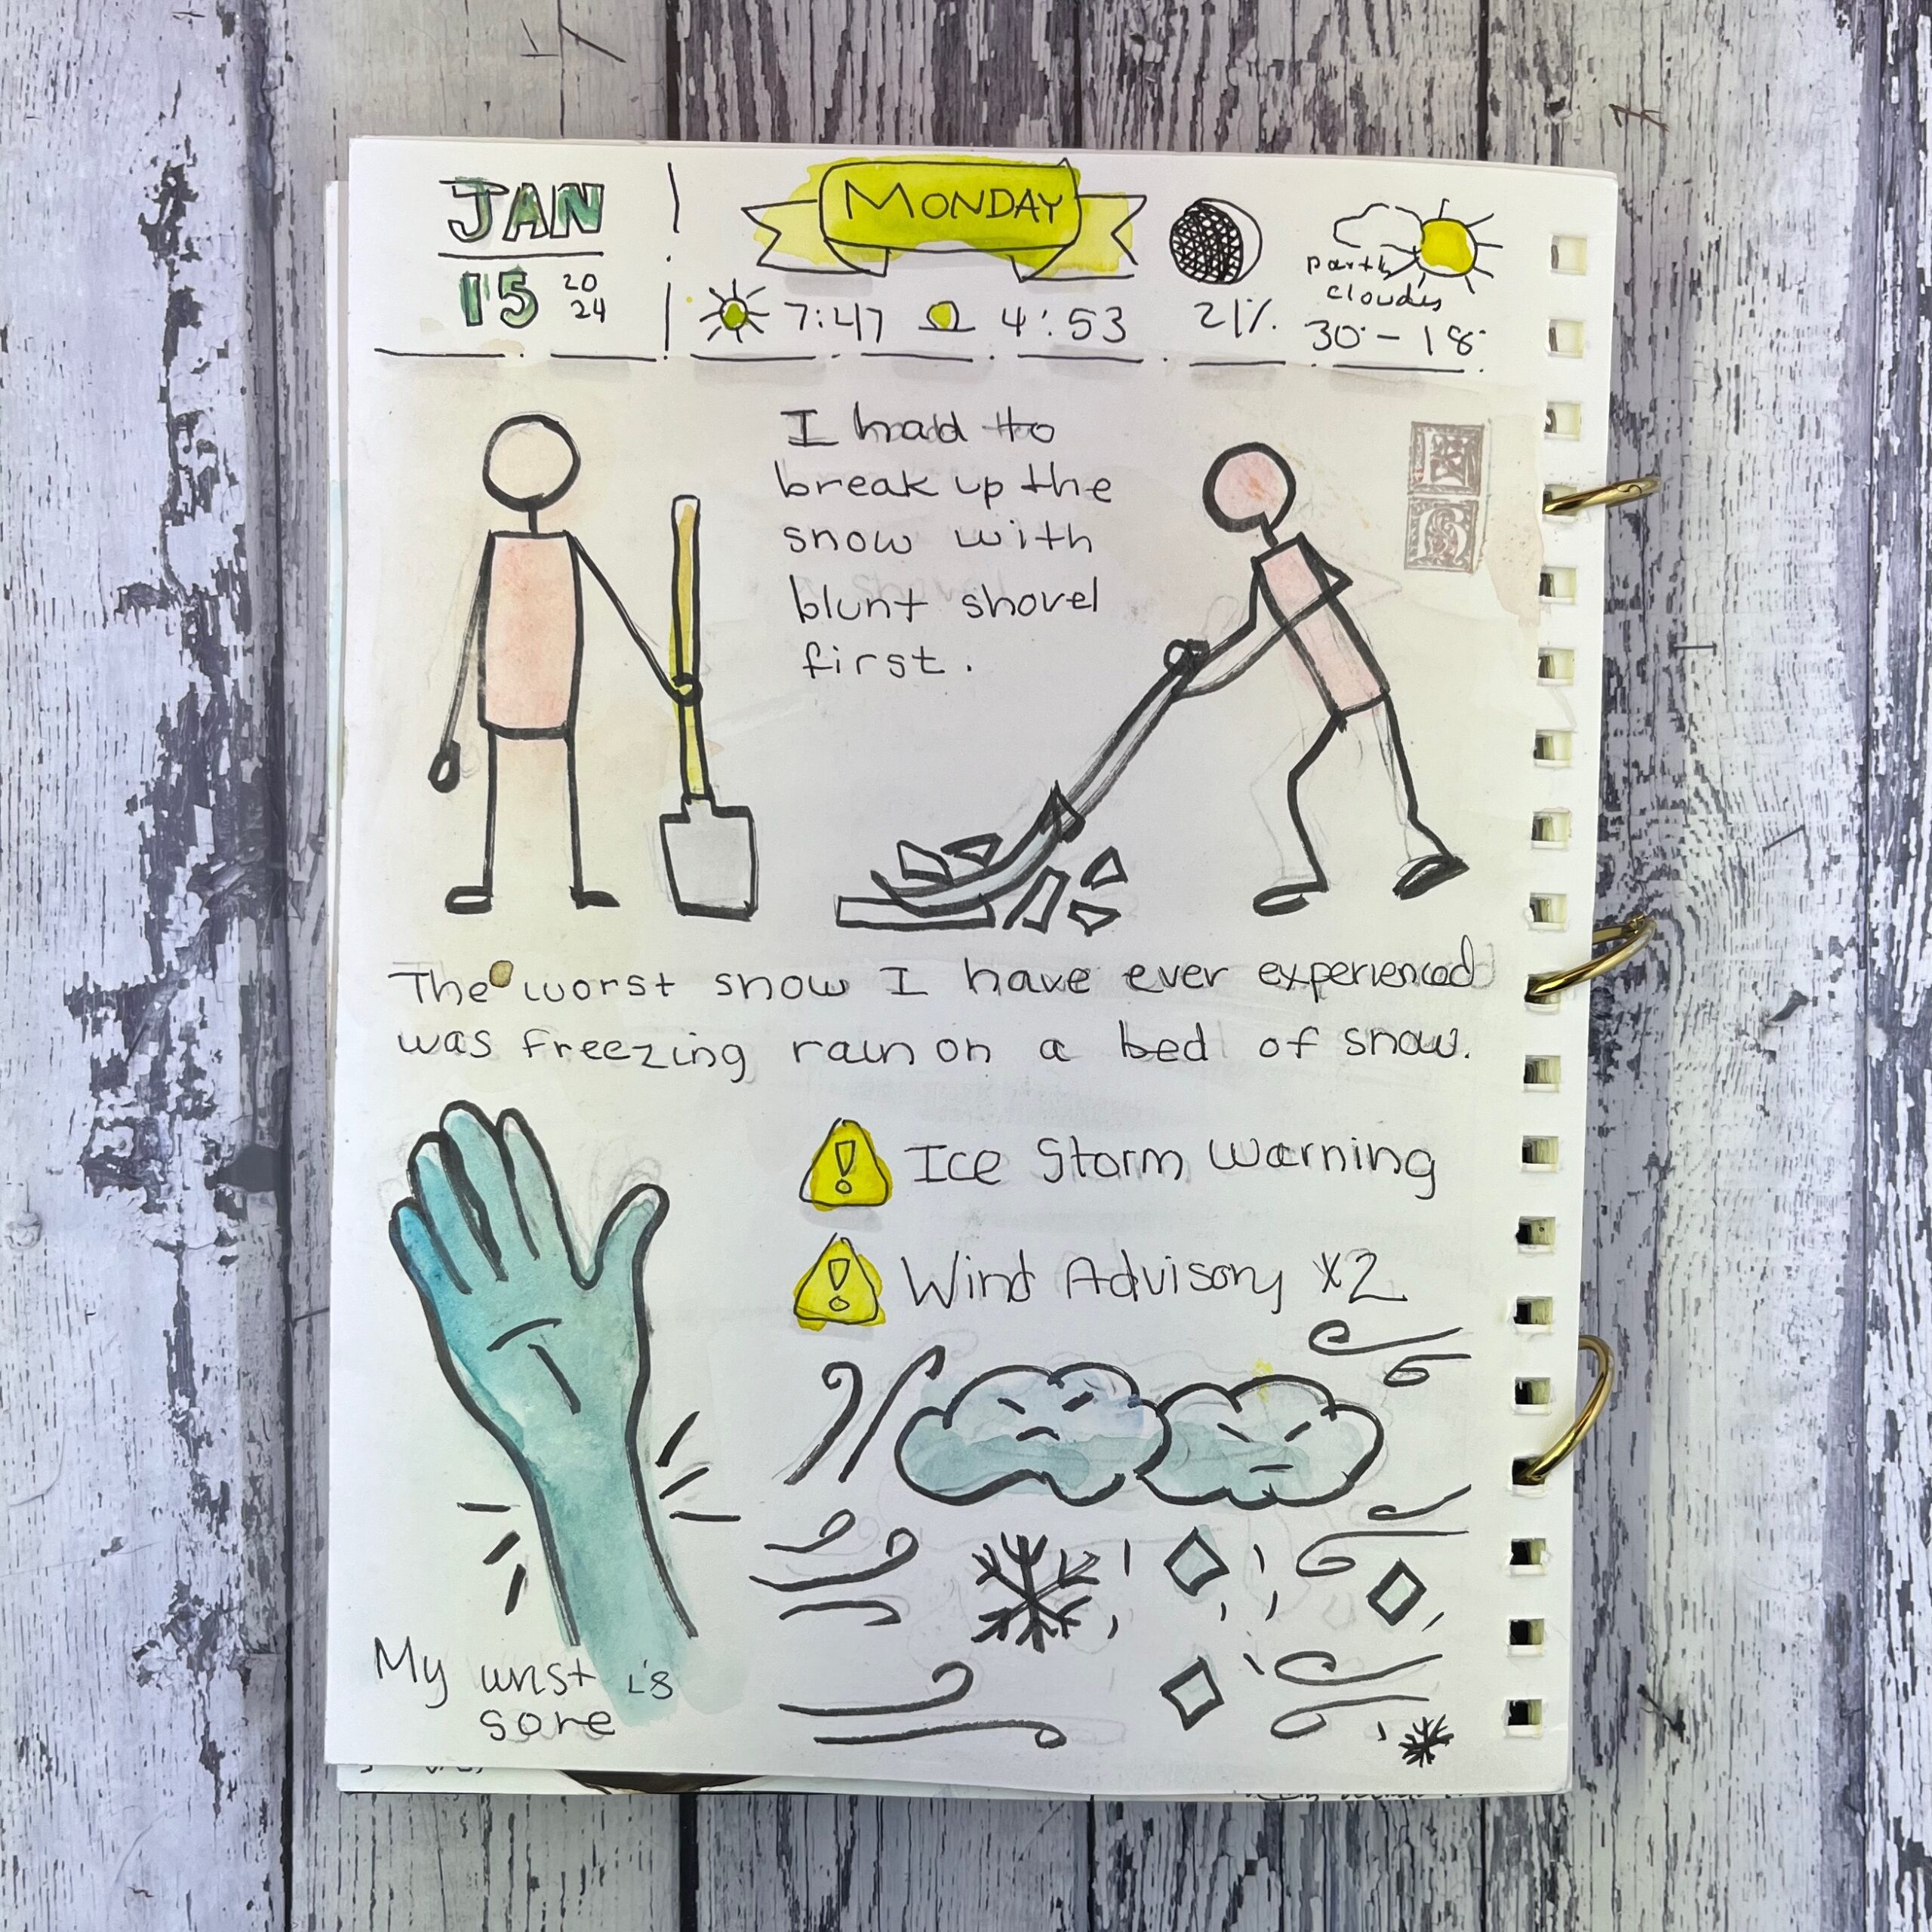 JAN
15 20
24
MONDAY
7:47 4:53
21%
partly
cloudy
30° - 18°
I had to
break up the
snow with
blunt shovel
first.
The worst snow I have ever experienced
was freezing rain on a bed of snow.
! Ice Storm Warning
! Wind Advisory x2
My wrist is
sore